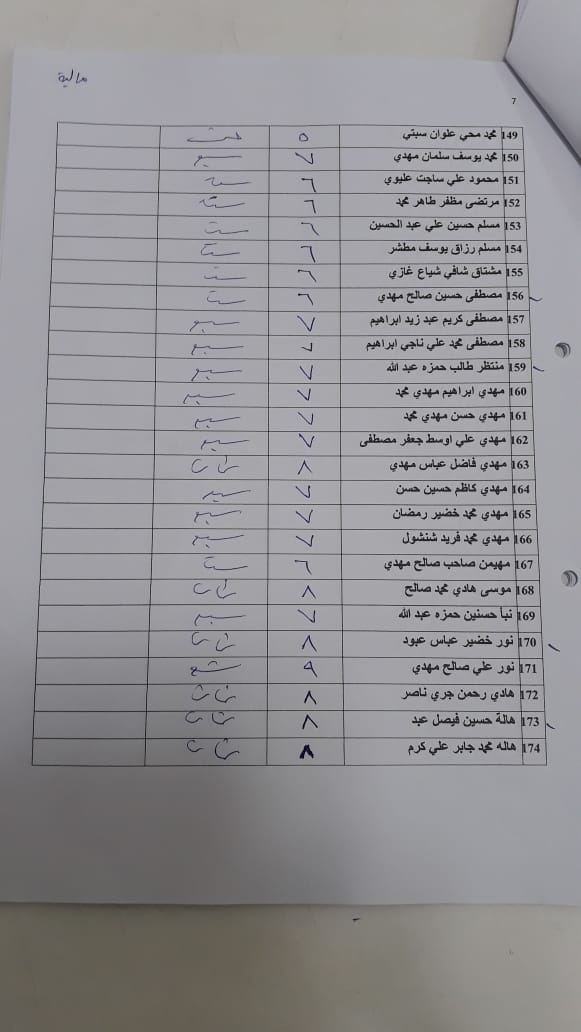 مالية
7
149 محمد محي علوان سبتي ٥ خمس
150 محمد يوسف سلمان مهدي ٧ سبع
151 محمود علي ساجت عليوي ٦ ستة
152 مرتضى مظفر طاهر محمد ٦ ستة
153 مسلم حسين علي عبد الحسين ٦ ست
154 مسلم رزاق يوسف مطشر ٦ ست
155 مشتاق شافي شياع غازي ٦ ست
156 مصطفى حسين صالح مهدي ٦ ست
157 مصطفى كريم عبد زيد ابراهيم ٧ سبع
158 مصطفى محمد علي ناجي ابراهيم ٧ سبع
159 منتظر طالب حمزه عبد الله ٧ سبع
160 مهدي ابراهيم مهدي محمد ٧ سبع
161 مهدي حسن مهدي محمد ٧ سبع
162 مهدي علي اوسط جعفر مصطفى ٧ سبع
163 مهدي فاضل عباس مهدي ٨ ثمان
164 مهدي كاظم حسين حسن ٧ سبع
165 مهدي محمد خضير رمضان ٧ سبع
166 مهدي محمد فريد شنشول ٧ سبع
167 مهيمن صاحب صالح مهدي ٦ ست
168 موسى هادي محمد صالح ٨ ثمان
169 نبأ حسنين حمزه عبد الله ٧ سبع
170 نور خضير عباس عبود ٨ ثمان
171 نور علي صالح مهدي ٩ تسع
172 هادي رحمن جري ناصر ٨ ثمان
173 هالة حسين فيصل عبد ٨ ثمان
174 هاله محمد جابر علي كرم ٨ ثمان